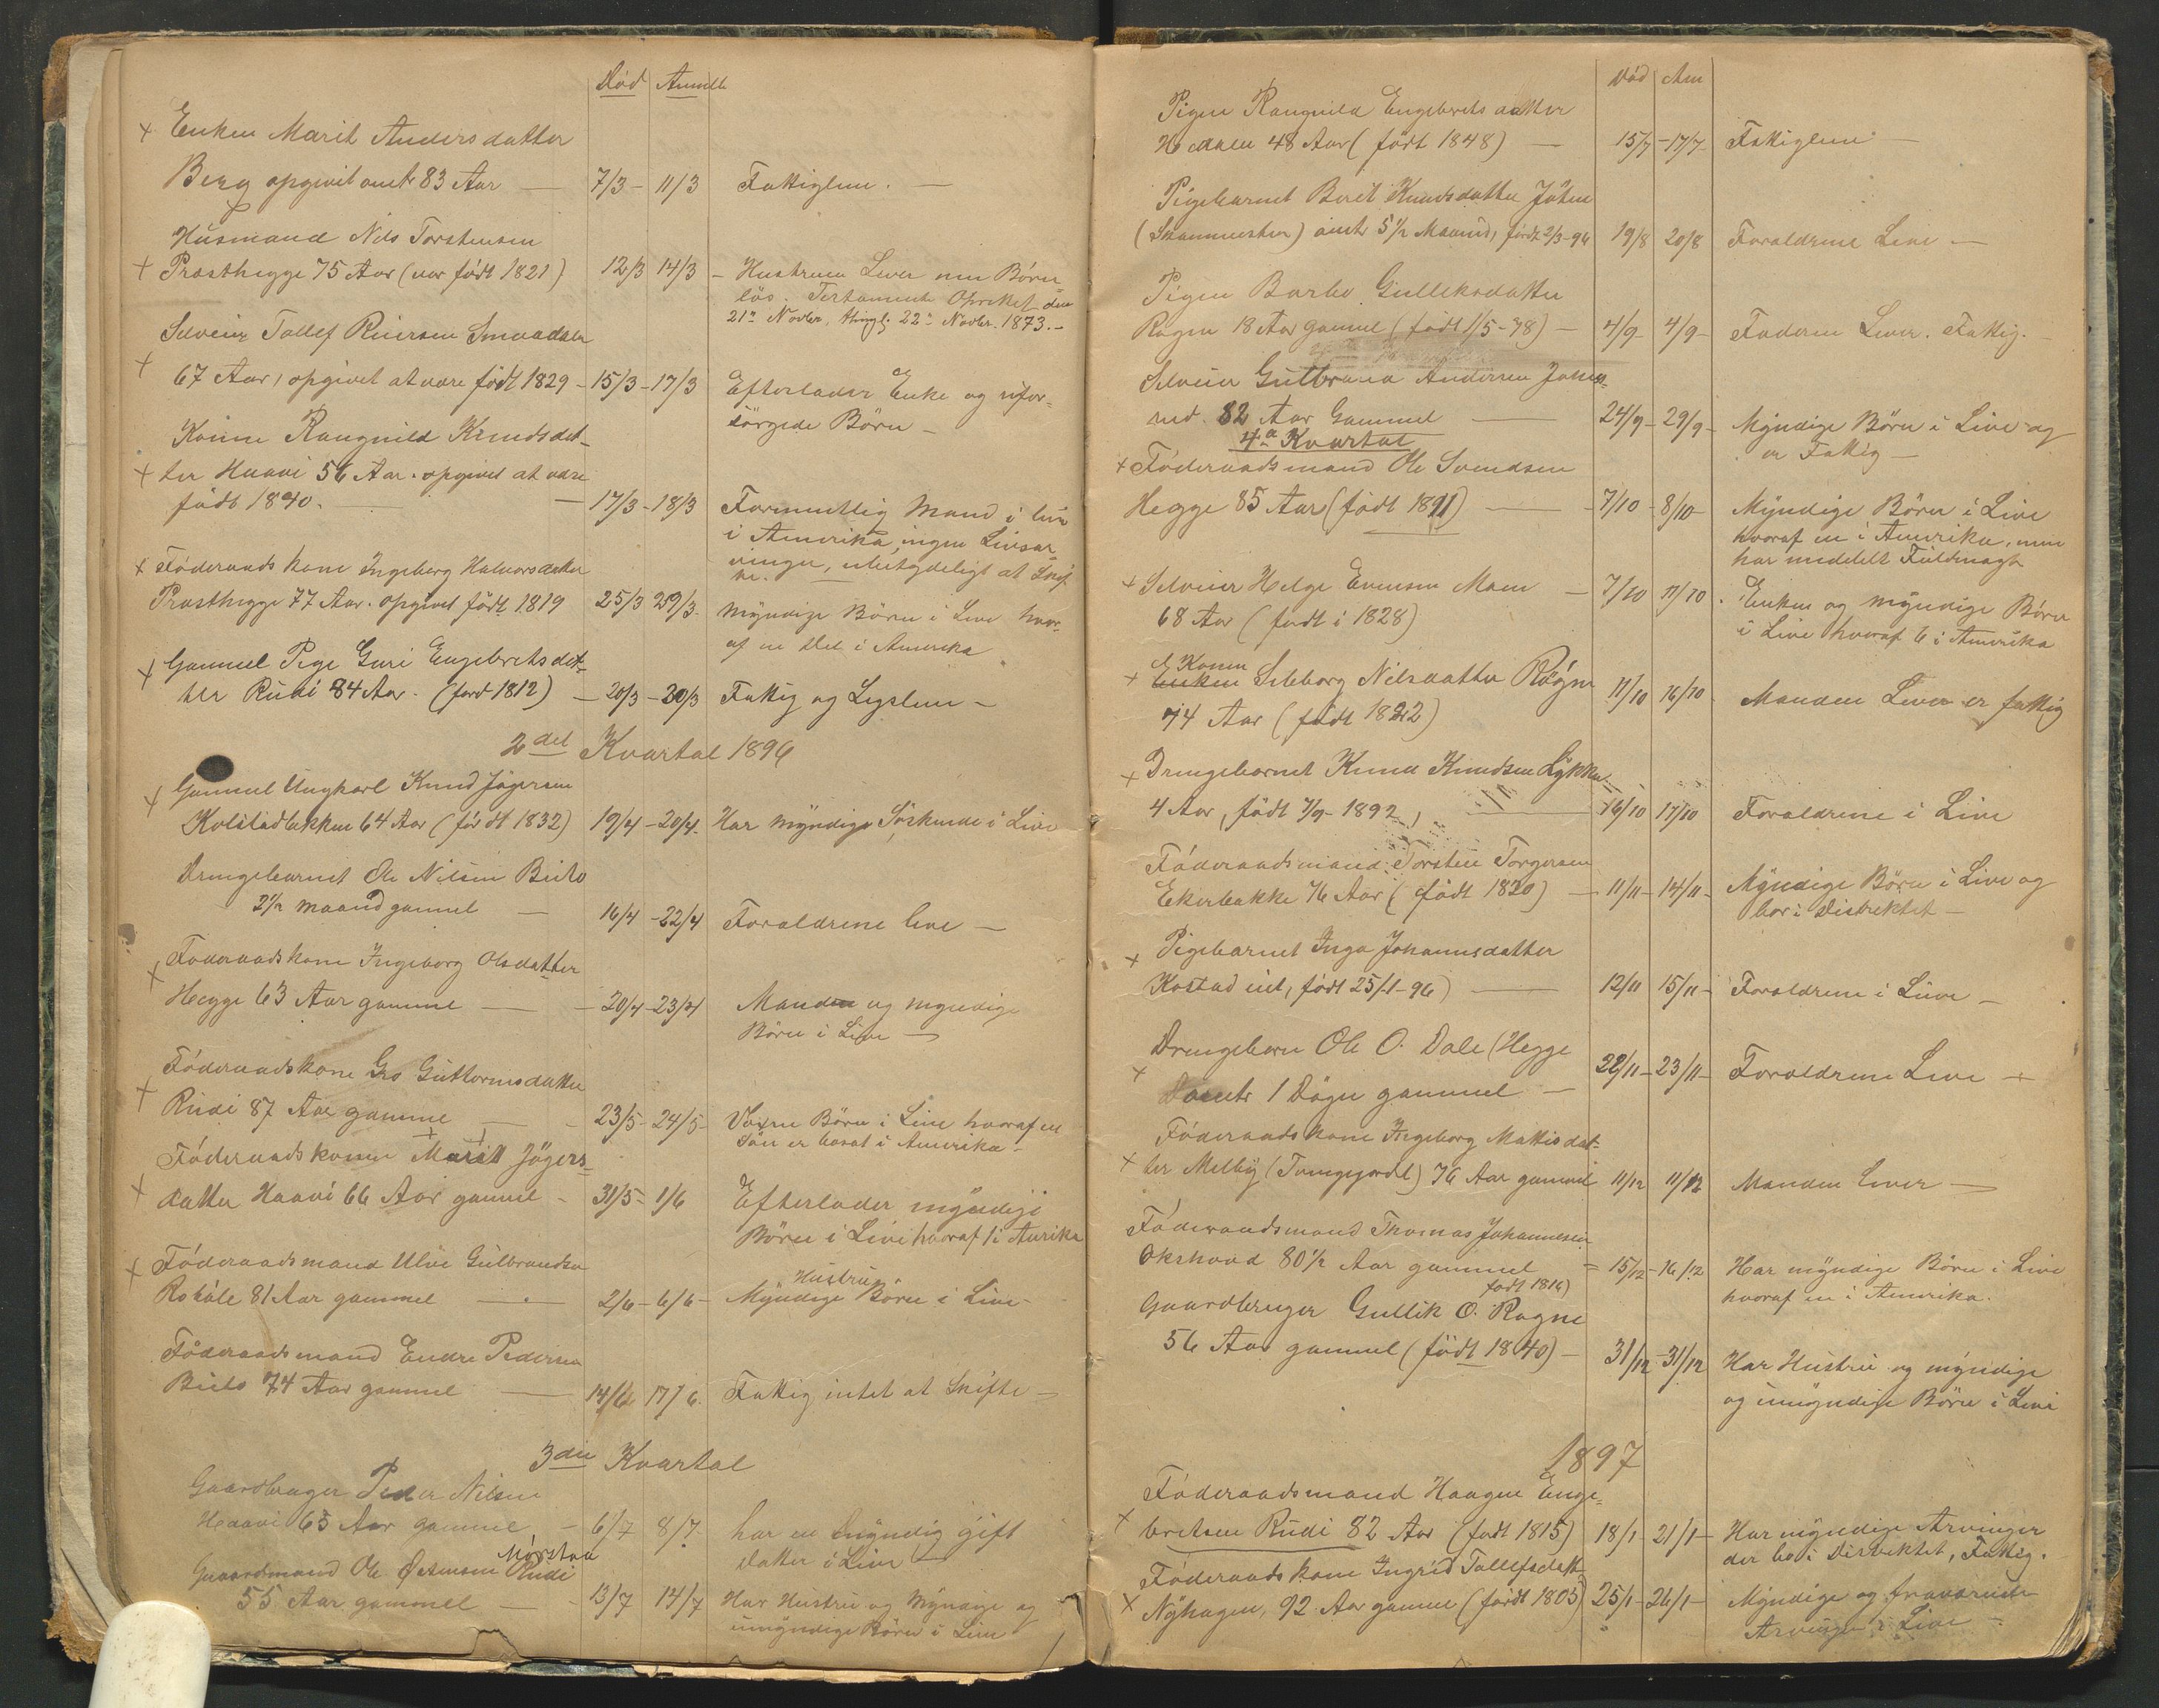 Död Anmeldt
+ Enken Marit Andersdatter
Berg opgivet omtr 83 Aar — 7/3 - 11/3 Fattiglem. —
Husmand Nils Torstensen
+ Præsthegge 75 Aar (var född 1821) 12/3 14/3 - Hustruen Lever men Börn
lös. Testamente Oprettet den
21de Novbr, thingl: 22de Novbr. 1873. -
Selveier Tollef Reiersen
+ 67 Aar, opgivet at være födt 1829 - 15/3 - 17/3 Efterlader Enke og ufor-
sörgede Börn -
Konen Rangnild Knudsdat-
+ ter Haavi 56 Aar. opgivet at være
födt 1840. — 17/3 - 18/3 Formentlig Mand i live
i Amerika, ingen Livsar-
vinger, ubetydeligt at Skif-
te.
+ Föderaadskone Ingeborg Halvorsdatter
Præsthegge 77 Aar. opgivet födt 1819 25/3 29/3. Myndige Börn i Live hvor-
af en Del i Amerika
+ Gammel Pige Guri Engebretsdat-
ter Rudi 84 Aar. (född 1812) — 20/3 - 30/3 Fattig og Legslem -
2det Kvartal 1896
+ Gammel Ungkarl Knud Jögersen
Kolstadbakken 64 Aar (född 1832) 19/4 - 20/4. Har myndige Söskende i Live
Drengebarnet Ole Nilsen Beito
2½ maand gammel — 16/4 - 22/4 Foraldrene leve —
+ Föderaadskone Ingeborg Olsdatter
Hegge 63 Aar gammel — 20/4 - 23/4 Manden og myndige
Börn i Live —
Föderaadskone Gro Guttormsdatter
+ Rudi 87 Aar gammel — 23/5 - 24/5 - Voxne Börn i Live hvoraf en
Sön er bosat i Amerika -
Föderaadskonen Marit Jögers-
+ datter Haavi 66 Aar gammel - 31/5 - 1/6 Efterlader myndige
Börn i Live hvoraf 1 i Amrika
+ Föderaadsmand Ulve Gulbrandsen
Hustru
Robøle 81 Aar gammel — 2/6 - 6/6 - Myndige Börn i Live -
Föderaadsmand Endre Pedersen
Beito 74 Aar gammel — 14/6 17/6. Fattig intet at Skifte -
3die Kvartal
Gaardbruger Peder Nilsen
Haavi 65 Aar gammel - 6/7 8/7. har en myndig gift
datter i Live -
Mörstaa
Gaardmand Ole Østensen Rudi
55 Aar gammel — 13/7 14/7 Har Hustru og Myndige og
umyndige Börn i Live
Död Anm
Pigen Rangnild Engebretsdatter
48 Aar (födt 1848) — 15/7 - 17/7 Fattiglem —
Pigebarnet Berit Knudsdatter
omtr 5½ Maaned, födt 2/3 - 96 19/8 20/8 Foraldrene Leve —
Pigen Barbo Gulleksdatter
Rogne 18 Aar gammel (födt 1/5 - 78) — 4/9 - 4/9 - Faderen Lever. Fattig. -
Selveier Gulbrand Andersen
82 Aar Gammel — 24/9 - 29/9 - Myndige Börn i Live og
er Fattig —
4de Kvartal
+ Föderaadsmand Ole Svendsen
Hegge 85 Aar (födt 1811) — 7/10 - 8/10 - Myndige Börn i Live
hvoraf en i Amerika, men
har meddelt Fuldmagt
+ Selveier Helge Evensen Moen — 7/10 11/10. Enken og myndige Börn
68 Aar (född i 1828) i Live hvoraf 6 i Amerika
Konen
+ Enken Sebborg Nilsdatter Rogne 11/10 16/10. Manden Lever er fattig
74 Aar (födt 1822)
+ Drengebarnet Knud Knudsen Lykken
4 Aar, födt 7/9 - 1892, — 16/10 17/10 Foraldrene i Live
Föderaadsmand Torsten Torgersen
Ekerbakke 76 Aar (födt 1820) — 11/11 - 14/11 - Myndige Börn i Live og
bor i Distriktet —
+ Pigebarnet Inga Johannesdatter
Kostad eie, födt 25/1 - 96) — 12/11 15/11 - Foraldrene i Live —
Drengebarn Ole O. Dale (Hegge
+ omtr 1 Dögn gammel — 22/11 - 23/11 - Foraldrene Leve —
Föderaadskone Ingeborg Mattisdat-
+ ter Melby (Tvengejordet) 76 Aar gammel 11/12 11/12 Manden Lever —
Föderaadsmand Thomas Johannesen
Okshovd 80½ Aar gammel = 15/12 - 16/12 Har myndige Börn i Live
födt 1816) hvoraf en i Amerika.
Gaardbruger Gullik O. Rogne
56 Aar gammel (födt 1840) — 31/12 - 31/12 Har Hustru og myndige
og umyndige Börn i Live
1897
Föderaadsmand Haagen Enge-
+ bretsen Rudi 82 Aar (född 1815) 18/1 - 21/1 - Har myndige Arvinger
der bo i Distriktet, Fattig.
Föderaadskone Ingrid Tollefsdatt
+ Nyhagen, 92 Aar gammel (födt 1805) 25/1 - 26/1 - Myndige og fraværende
Arvinger i Live -